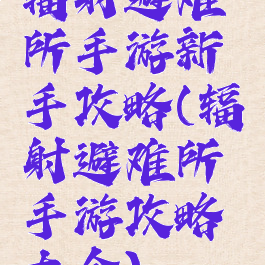 辐射避难
所手游新
手攻略(辐
射避难所
手游攻略
大全)